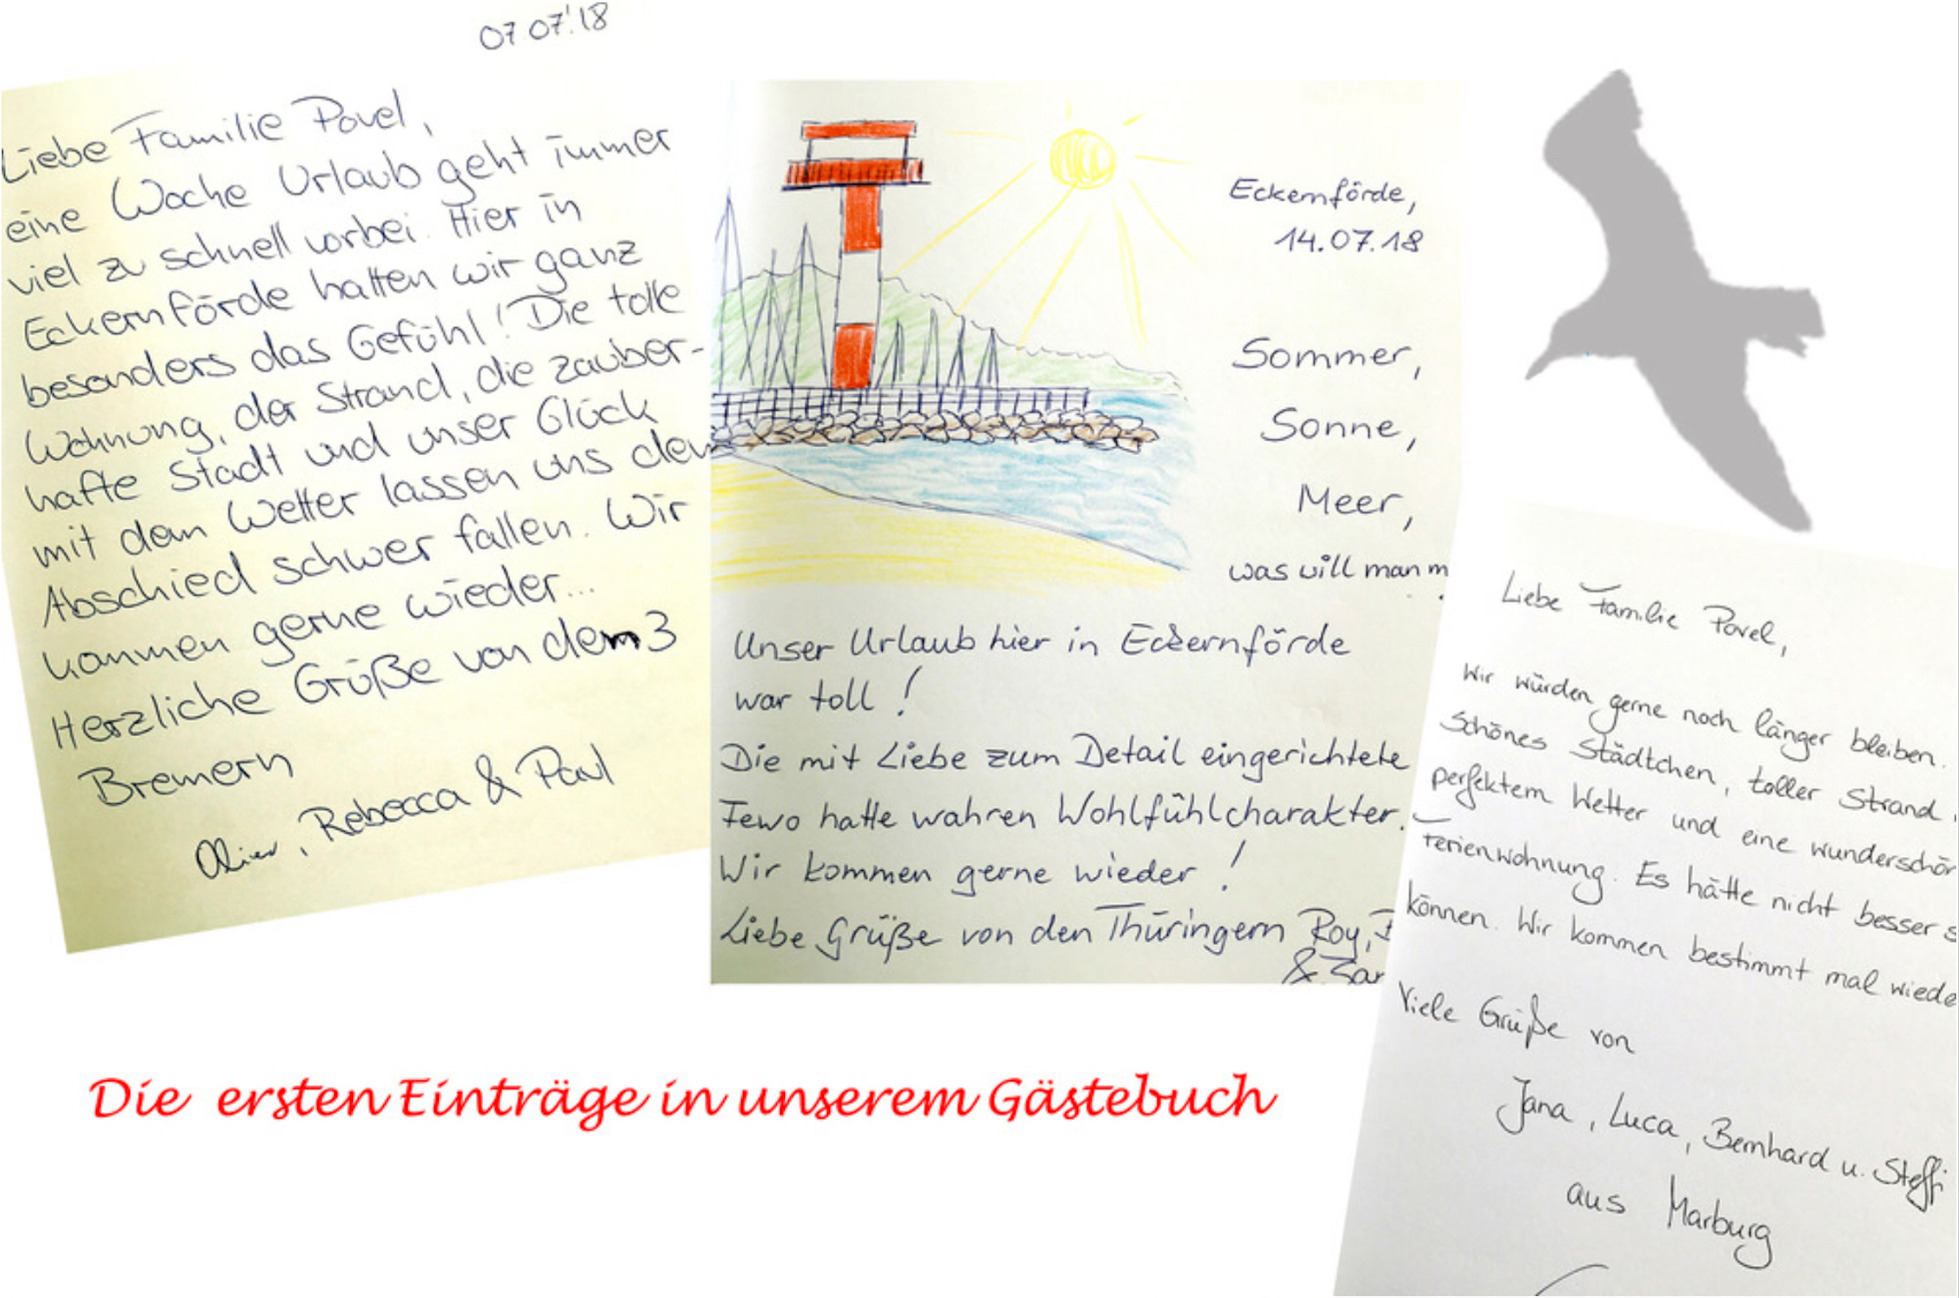 07.07.'18
Liebe Familie Povel,
eine Woche Urlaub geht immer
viel zu schnell vorbei. Hier in
Eckernförde hatten wir ganz
besonders das Gefühl! Die tolle
Wohnung, der Strand, die zauber-
hafte Stadt und unser Glück
mit dem Wetter lassen uns den
Abschied schwer fallen. Wir
kommen gerne wieder...
Herzliche Grüße von dem 3
Bremern
Oliver, Rebecca & Paul
Eckernförde,
14.07.18
Sommer,
Sonne,
Meer,
was will man m
Unser Urlaub hier in Eckernförde
war toll!
Die mit Liebe zum Detail eingerichtete
Fewo hatte wahren Wohlfühlcharakter.
Wir kommen gerne wieder!
Liebe Grüße von den Thüringern Roy,
&
Liebe Familie Povel,
wir würden gerne noch länger bleiben.
Schönes Städtchen, toller Strand,
perfektem Wetter und eine wunderschön
Ferienwohnung. Es hätte nicht besser s
können. Wir kommen bestimmt mal wiede
Viele Grüße von
Jana, Luca, Bernhard u. Steffi
aus Marburg
Die ersten Einträge in unserem Gästebuch